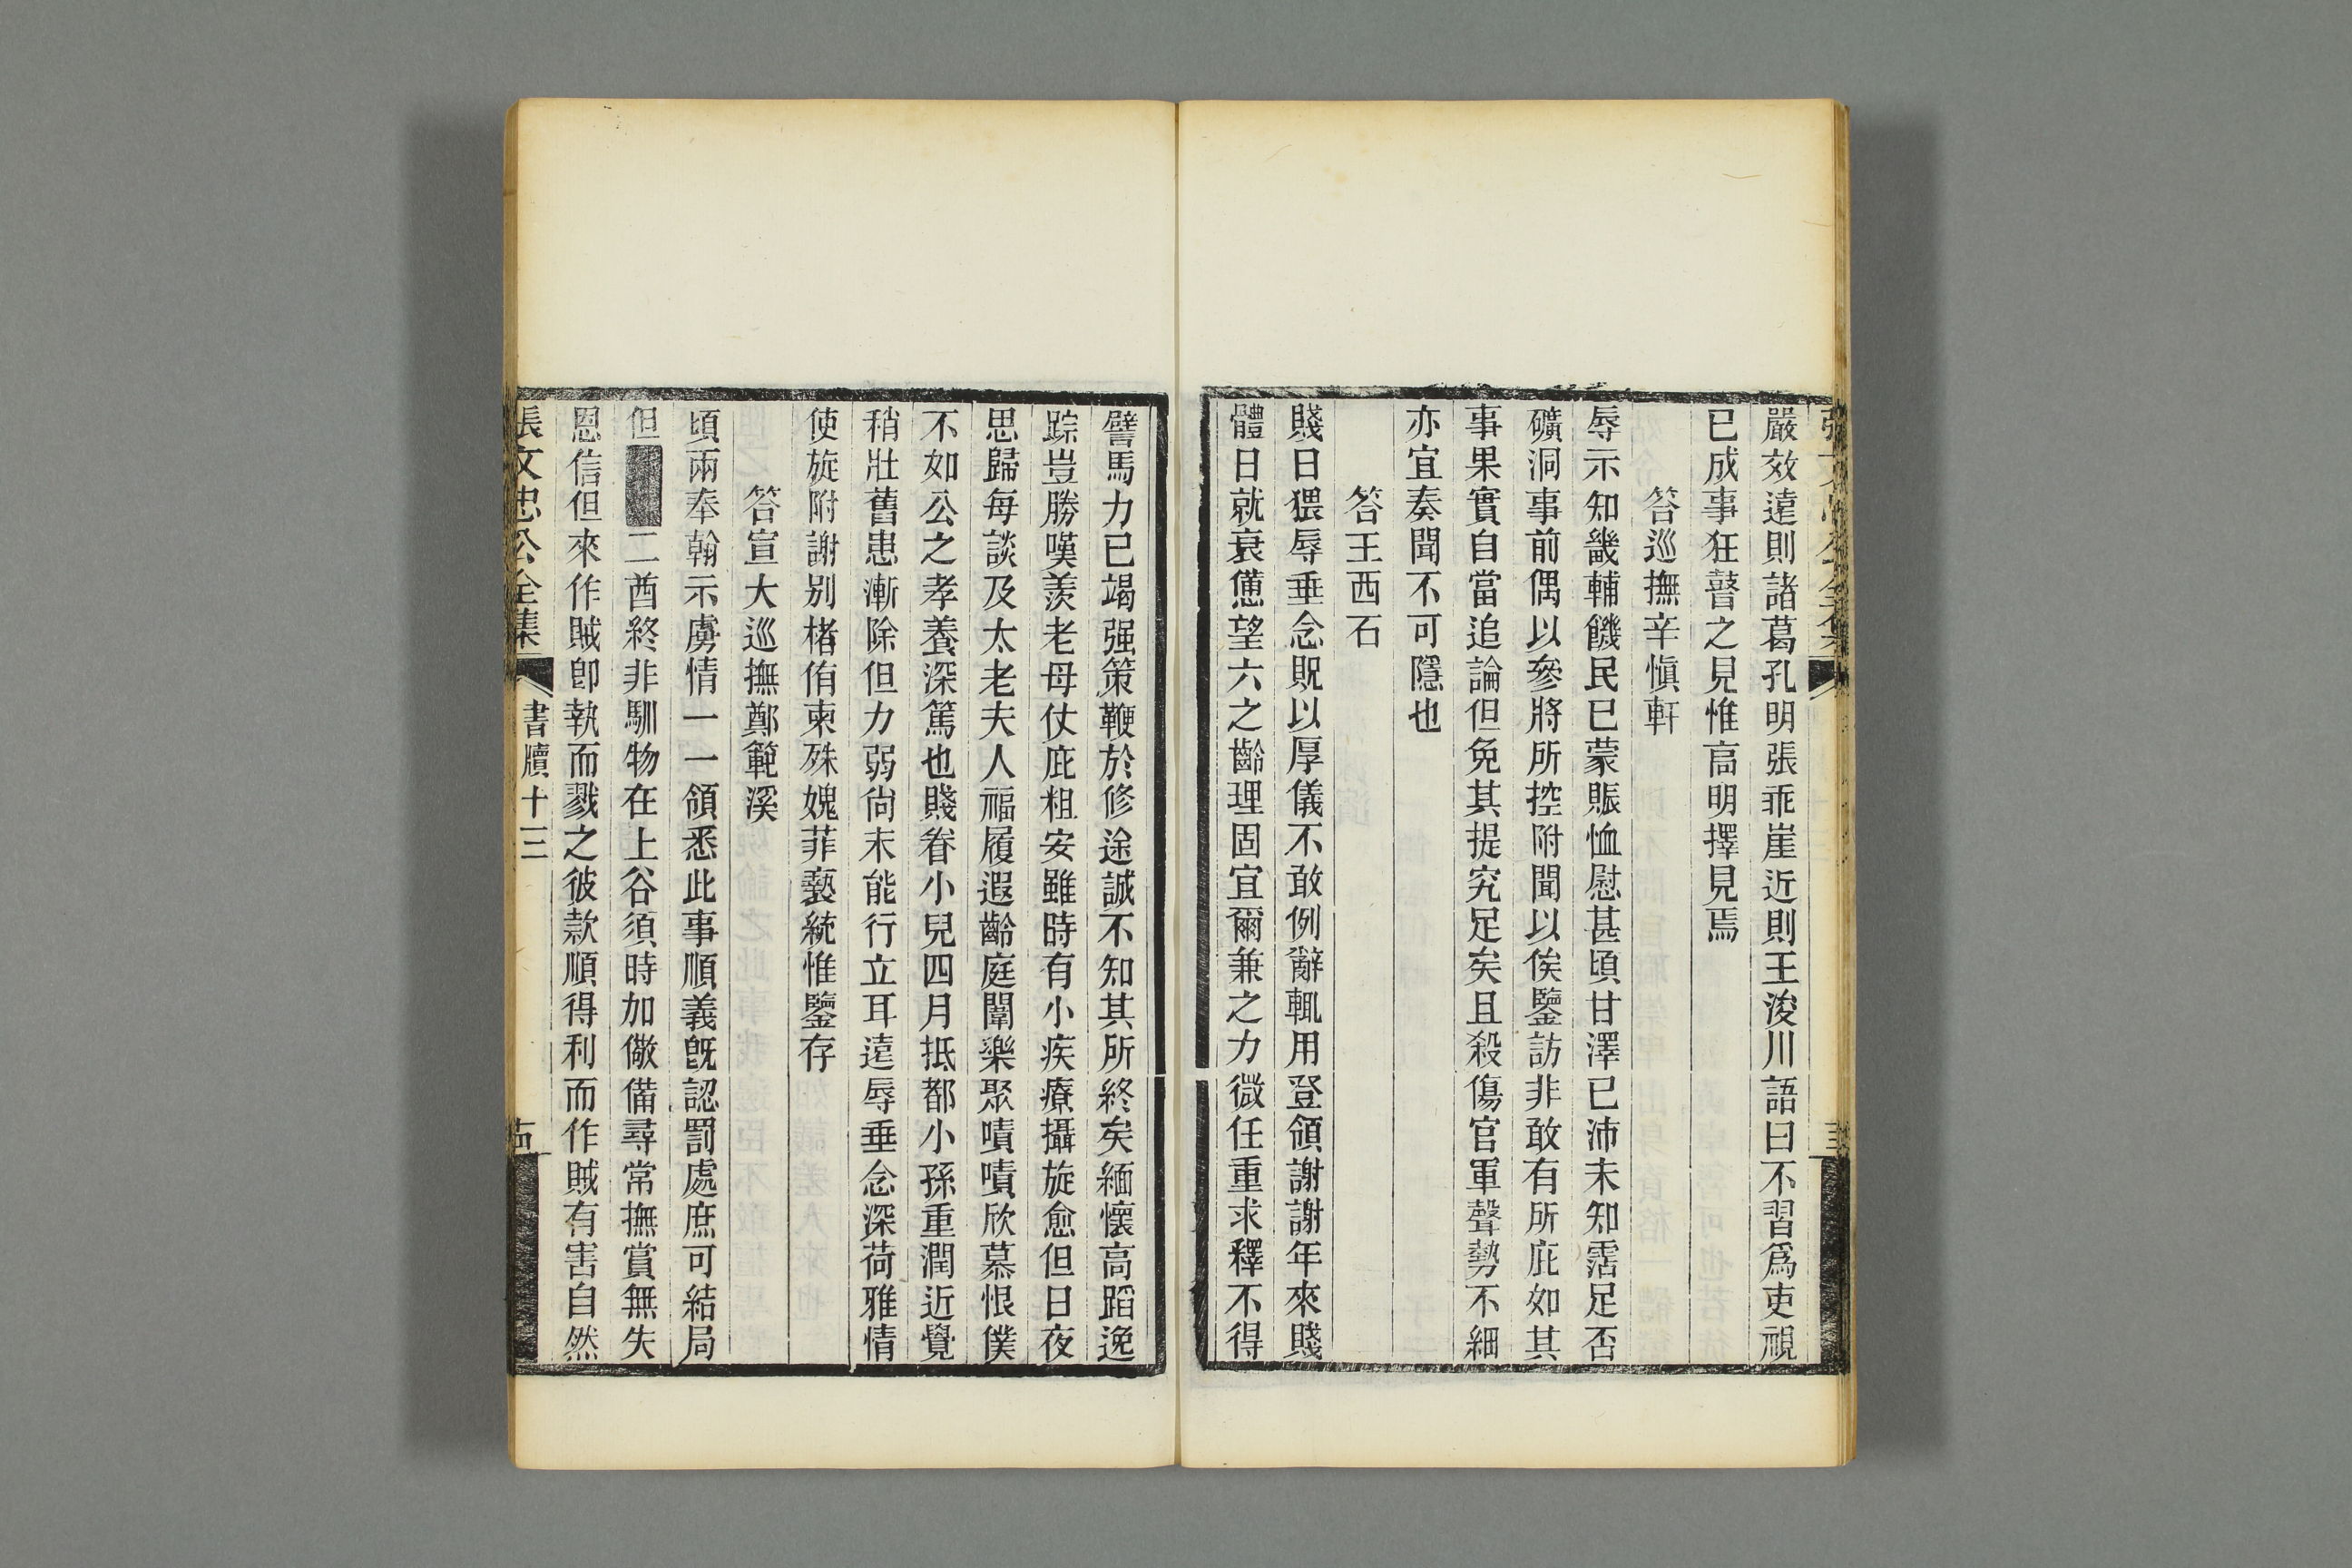 嚴效遠則諸葛孔明張乖崖近則王浚川語曰不習爲吏視
已成事狂瞽之見惟高明擇見焉
答巡撫辛愼軒
辱示知畿輔饑民已蒙賑恤慰甚頃甘澤已沛未知霑足否
礦洞事前偶以參將所控附聞以俟鑒訪非敢有所庇如其
事果實自當追論但免其提究足矣且殺傷官軍聲勢不細
亦宜奏聞不可隱也
答王西石
賤日猥辱垂念貺以厚儀不敢例辭輒用登領謝謝年來賤
體日就衰憊望六之齡理固宜爾兼之力微任重求釋不得
譬馬力已竭强策鞭於修途誠不知其所終矣緬懷高蹈逸
踪豈勝嘆羨老母仗庇粗安雖時有小疾療攝旋愈但日夜
思歸每談及太老夫人福履遐齡庭闈樂聚嘖嘖欣慕恨僕
不如公之孝養深篤也賤眷小兒四月抵都小孫重潤近覺
稍壯舊患漸除但力弱尙未能行立耳遠辱垂念深荷雅情
使旋附謝别楮侑柬殊媿菲褻統惟鑒存
答宣大巡撫鄭範溪
頃兩奉翰示虜情一一領悉此事順義旣認罰處庶可結局
但 二酋終非馴物在上谷須時加儆備尋常撫賞無失
恩信但來作賊卽執而戮之彼款順得利而作賊有害自然
張文忠公全集 書牘十三